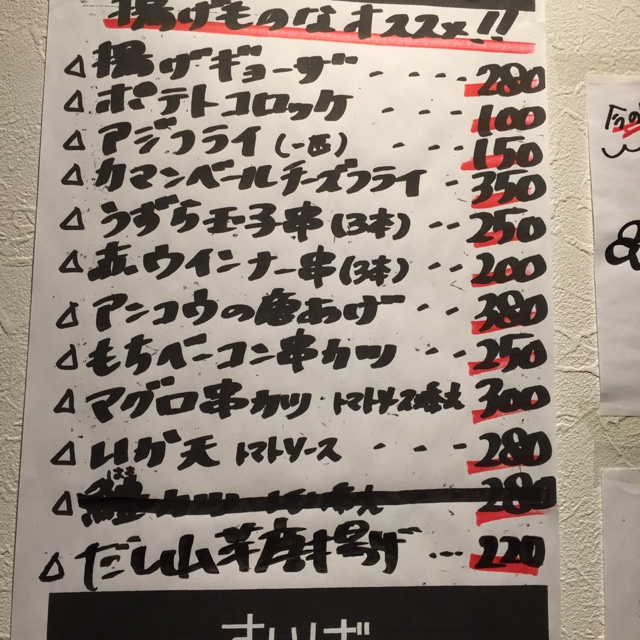 揚げものなオススメ!!
△ 揚げギョーザ - - - - 280
△ ポテトコロッケ - - - 100
△ アジフライ(一匹) - - - 150
△ カマンベールチーズフライ - 350
△ うずら玉子串(3本) - - 250
△ 赤ウインナー串(3本) - - 200
△ アンコウの唐あげ - - 380
△ もちベーコン串カツ - - 250
△ マグロ串カツ トマトソース 300
△ いか天 トマトソース - - - 280
△ カツ 280
△ だし山芋唐揚げ ... 220
今の